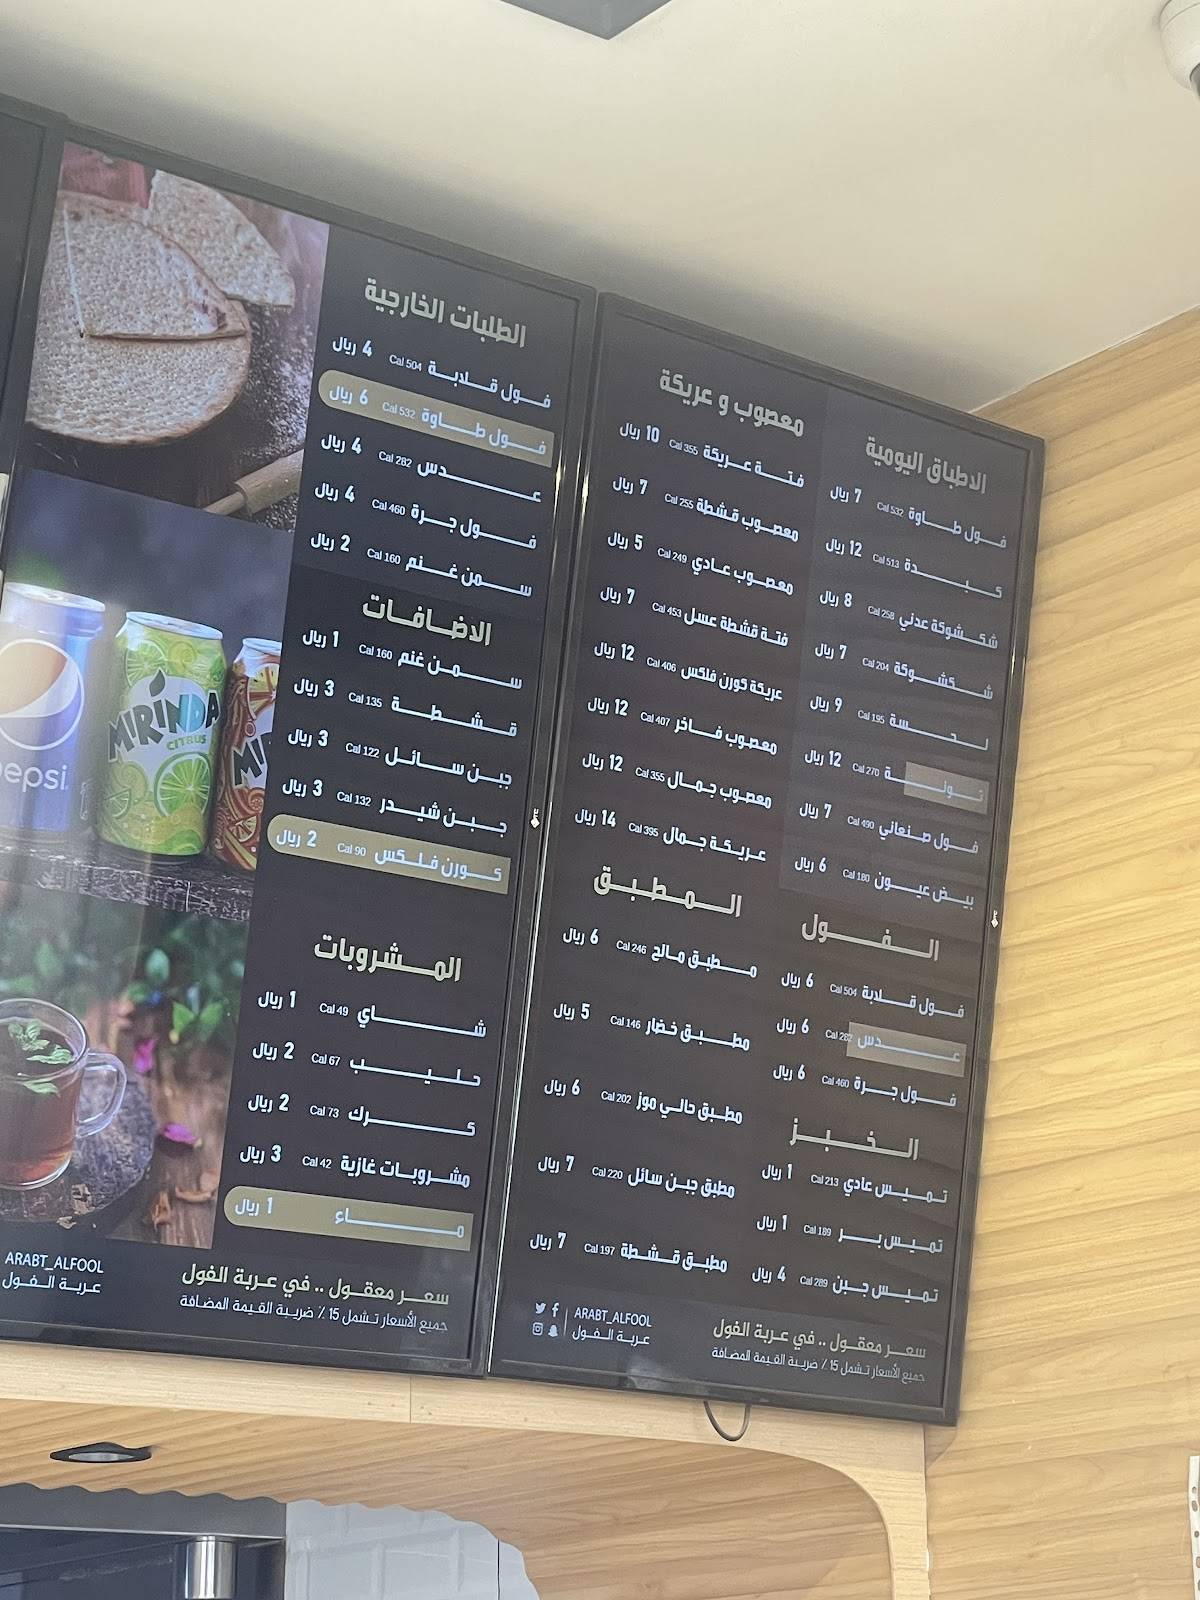 الاطباق اليومية
فول طاوة Cal 532 7 ريال
كبدة Cal 513 12 ريال
شكشوكة عدني Cal 258 8 ريال
شكشوكة Cal 204 7 ريال
لحسة Cal 195 9 ريال
تونة Cal 270 12 ريال
فول صنعاني Cal 490 7 ريال
بيض عيون Cal 180 6 ريال
الفول
فول قلابة Cal 504 6 ريال
عدس Cal 282 6 ريال
فول جرة Cal 460 6 ريال
الخبز
تميس عادي Cal 213 1 ريال
تميس بر Cal 189 1 ريال
تميس جبن Cal 289 4 ريال
معصوب و عريكة
فتة عريكة Cal 355 10 ريال
معصوب قشطة Cal 255 7 ريال
معصوب عادي Cal 249 5 ريال
فتة قشطة عسل Cal 453 7 ريال
عريكة كورن فلكس Cal 406 12 ريال
معصوب فاخر Cal 407 12 ريال
معصوب جمال Cal 355 12 ريال
عريكة جمال Cal 395 14 ريال
المطبق
مطبق مالح Cal 246 6 ريال
مطبق خضار Cal 146 5 ريال
مطبق حالي موز Cal 202 6 ريال
مطبق جبن سائل Cal 220 7 ريال
مطبق قشطة Cal 197 7 ريال
سعر معقول .. في عربة الفول
جميع الأسعار تشمل 15 ٪ ضريبة القيمة المضافة
ARABT_ALFOOL
عربة الفول
الطلبات الخارجية
فول قلابة Cal 504 4 ريال
فول طاوة Cal 532 6 ريال
عدس Cal 282 4 ريال
فول جرة Cal 460 4 ريال
سمن غنم Cal 160 2 ريال
الاضافات
سمن غنم Cal 160 1 ريال
قشطة Cal 135 3 ريال
جبن سائل Cal 122 3 ريال
جبن شيدر Cal 132 3 ريال
كورن فلكس Cal 90 2 ريال
المشروبات
شاي Cal 49 1 ريال
حليب Cal 67 2 ريال
كرك Cal 73 2 ريال
مشروبات غازية Cal 42 3 ريال
ماء 1 ريال
سعر معقول .. في عربة الفول
جميع الأسعار تشمل 15 ٪ ضريبة القيمة المضافة
ARABT_ALFOOL
عربة الفول
pepsi
MIRINDA
CITRUS
MI